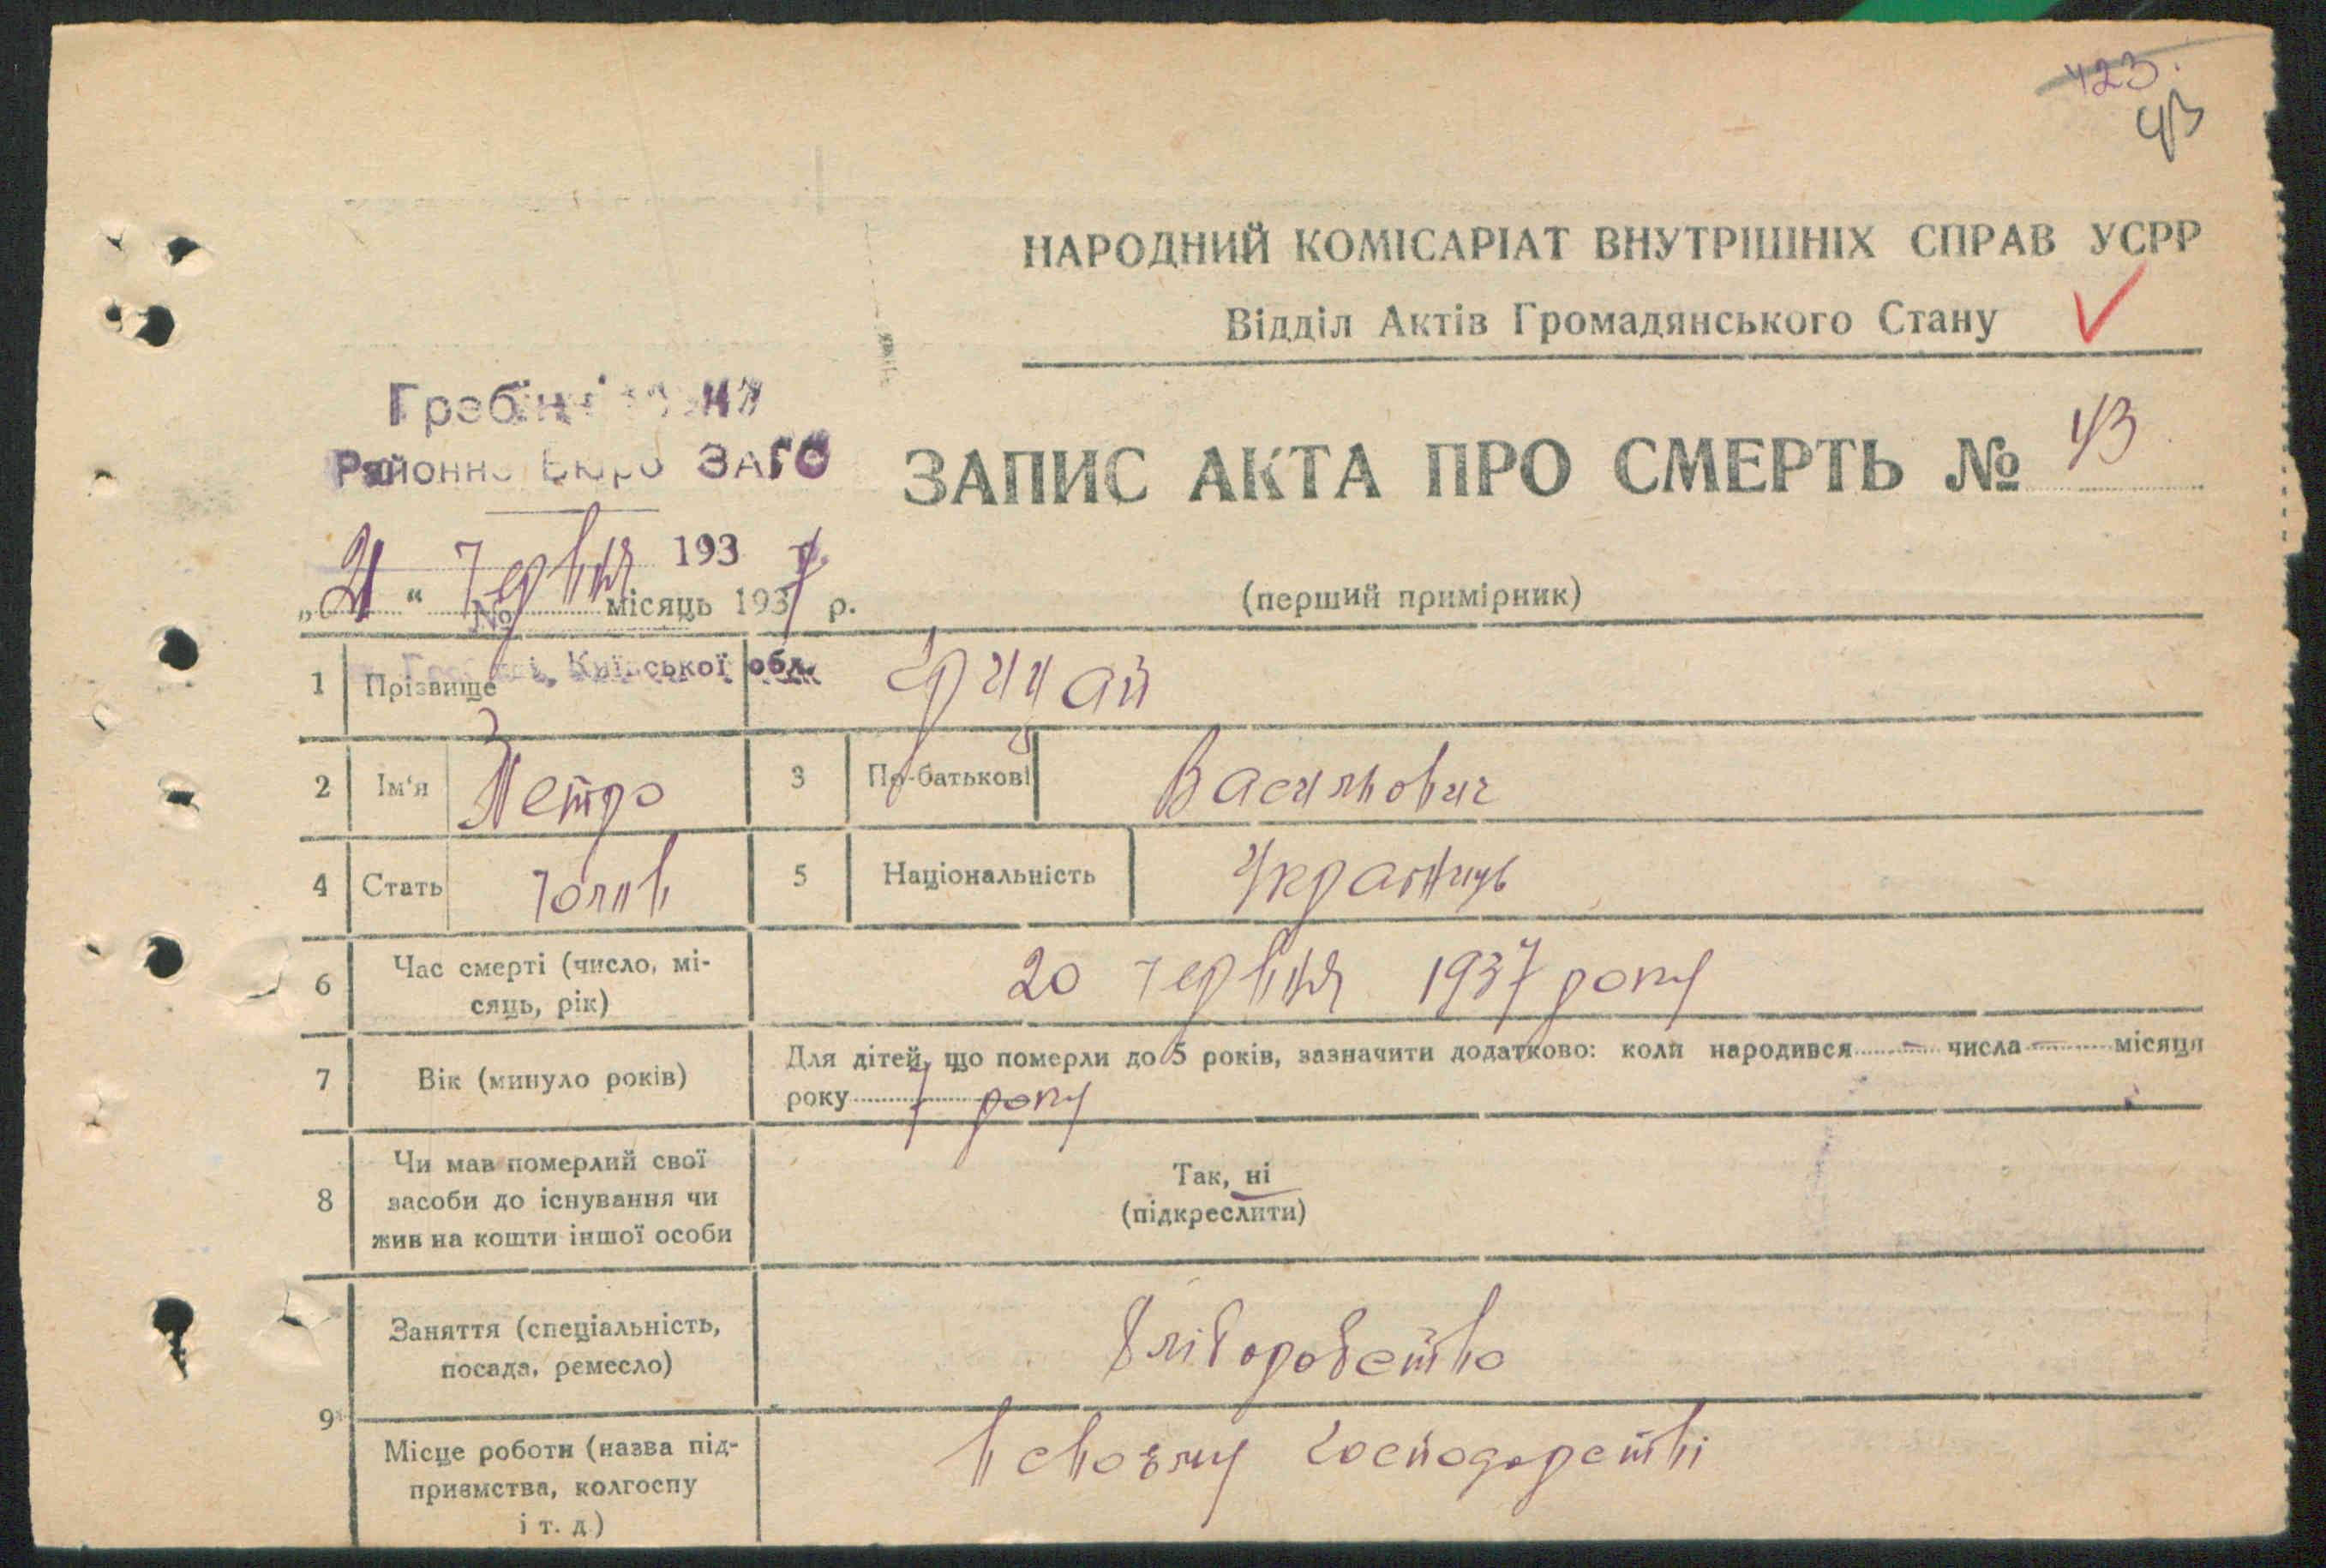 423.
43
НАРОДНИЙ КОМІСАРІАТ ВНУТРІШНІХ СПРАВ УСРР
Відділ Актів Громадянського Стану
Районне Бюро ЗАГС
ЗАПИС АКТА ПРО СМЕРТЬ № 43
193 р.
„21“ червня місяць 1937 р.
№
(перший примірник)
Київської обл.
1 Прізвище
2 Ім'я Петро 3 По-батькові Васильович
4 Стать чолов 5 Національність Українець
6 Час смерті (число, мі-
сяць, рік) 20 червня 1937 року
7 Вік (минуло років) Для дітей, що померли до 5 років, зазначити додатково: коли народився — числа — місяця
року 7 року
8 Чи мав померлий свої
засоби до існування чи
жив на кошти іншої особи
Так, ні
(підкреслити)
9 Заняття (спеціальність,
посада, ремесло) Хліборобство
Місце роботи (назва під-
приємства, колгоспу
і т. д) В своєму господарстві